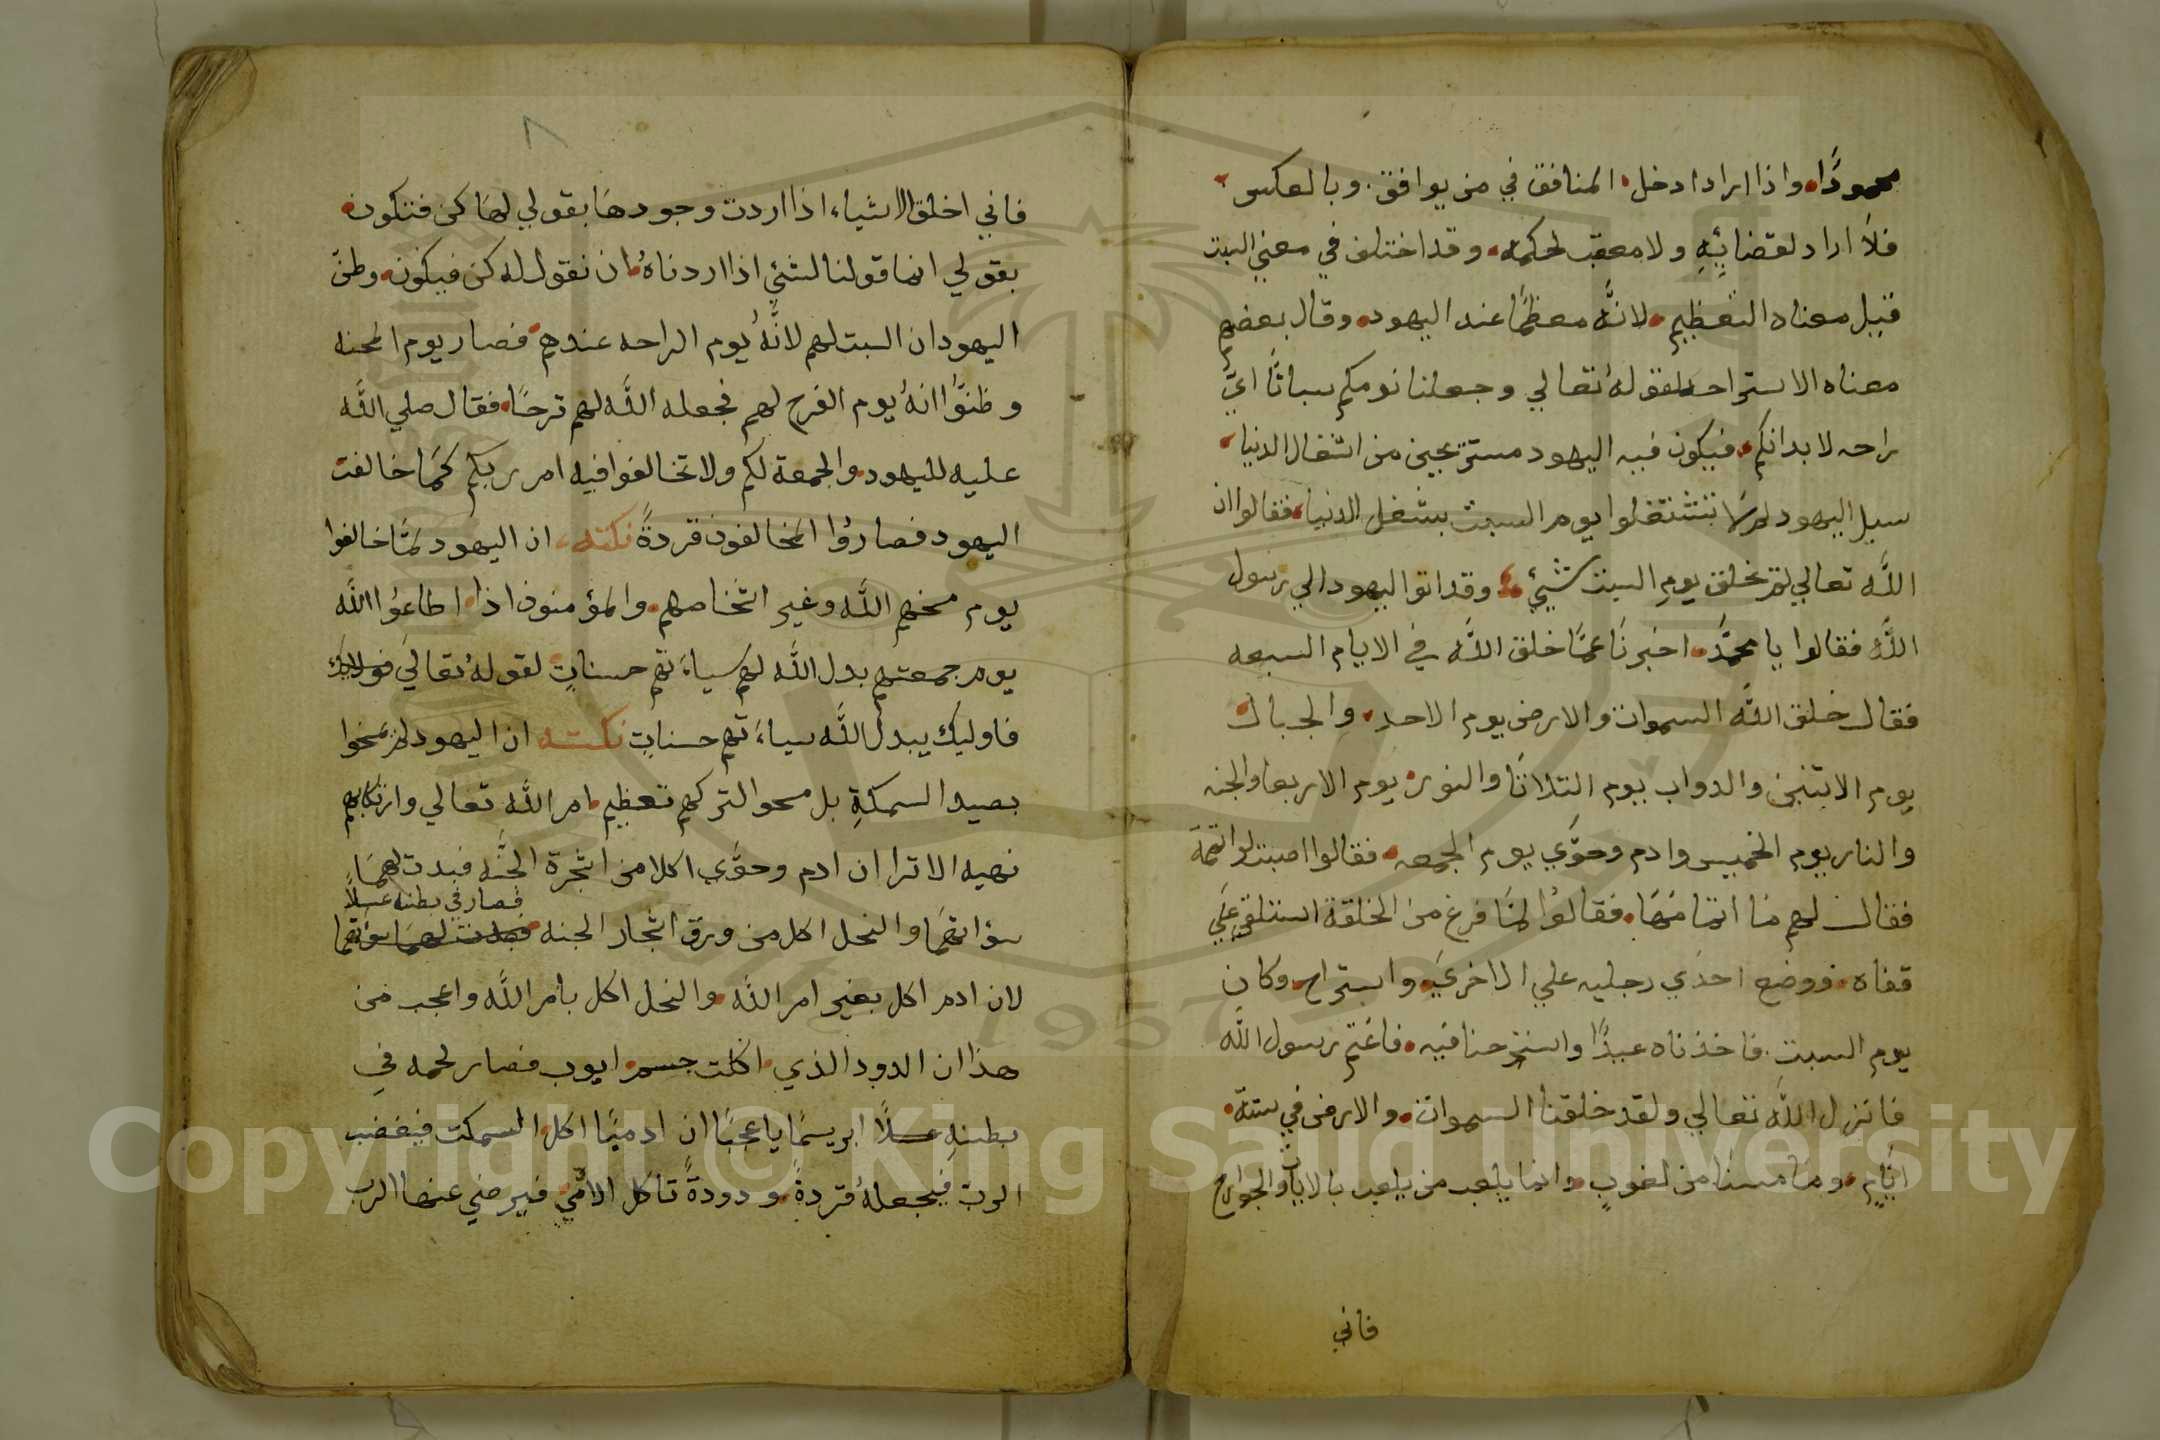 محمودًا، واذا اراد ادخل المنافق في من يوافق. وبالعكس
فلا اراد لقضائِهِ ولا معقب لحكمه، وقد اختلف في معني السبت
قيل معناه التعظيم، لانَّه معظمًا عند اليهود، وقال بعضهم
معناه الاستراحه، لقولهُ تعالي وجعلنا نومكم سباتًا ايّ
راحه لابدانكم، فيكون فيه اليهود مستريحين من اشغال الدنيا،
سيل اليهود لم لا تشتغلوا يوم السبت بشغل الدنيا، فقالوا ان
اللَّه تعالي لم يخلق يوم السبت شيئٍ، وقد اتوا اليهود الي رسول
اللَّه فقالوا يا محمَّد، اخبرنَا عمَّا خلق اللَّه في الايام السبعه
فقال خلق اللَّه السموات والارض يوم الاحد، والجبال
يوم الاثنين والدواب يوم الثلاثَا والنور، يوم الاربعا والجنه
والنار يوم الخميس وادم وحوَّي يوم الجمعه، فقالوا اصبت لو اتممة
فقال لهم مَا اتمامهَا، فقالوُا لمَّا فرغ من الخلقة استلقي علَي
قفاه، ووضع احدَي رجليه علي الاخرَي، واستراح، وكان
يوم السبت، فاخذناه عيدًا واسترحنا فيه، فاغتم رسول اللَّه
فانزل اللَّه تعالي ولقد خلقنا السموات، والارض في ستة،
ايَّامٍ، وما مسنَا من لغوبٍ، وانما يلعب من يلعب بالايات والجوارح
فاني
٨
فاني اخلق الاشياء، اذا اردت وجودهَا بقولي لهَا كن فتكون،
بقولي انما قولنا لشئيٍ اذا اردناهُ، ان نقول له كن فيكون، وظنّ
اليهود ان السبت لهم لانَّهُ يوم الراحه عندهم، فصار يوم المحنه
وظنوُّا انهُ يوم الفرح لهم فجعله اللَّه لهم ترحًا، فقال صلي اللَّه
عليه لليهود، والجمعة لكم ولا تخالفوا فيه امر ربكم كمَا خالفت
اليهود فصاروُا المخالفون قردةً نكته، ان اليهود لمَّا خالفوا
يوم مسخهم اللَّه وغير اشخاصهم، والمؤمنون اذا، اطاعوُا اللَّه
يوم جمعتهم بدل اللَّه لهم سياءَتهم حسناتٍ، لقولهُ تعالي
فاوليك يبدل اللَّه سياءَتهم حسناتٍ نكتـه ان اليهود لم يمسخوا
بصيد السمكةِ بل مسخوا لتركهم تعظيم، امر اللَّه تعالي وارتكابهم
نهيه الا ترا ان ادم وحوَّي اكلا من اشجرة الجنَّه فبدت لهمَا
سؤاتهمَا والنحل اكل من ورق اشجار الجنه، فصار في بطنه عسلاً
لان ادم اكل بغير امر اللَّه، والنحل اكل بامر اللَّه واعجب من
هذا ان الدود الذي، اكلت جسم، ايوب فصار لحمه في
بطنهِ ابريسمًا يا عجبًا ان ادميًا اكل، السمكت فيغضب
الرب فيجعلهُ قردةً، ودودةً تاكل الادمي، فيرضي عنها الرب